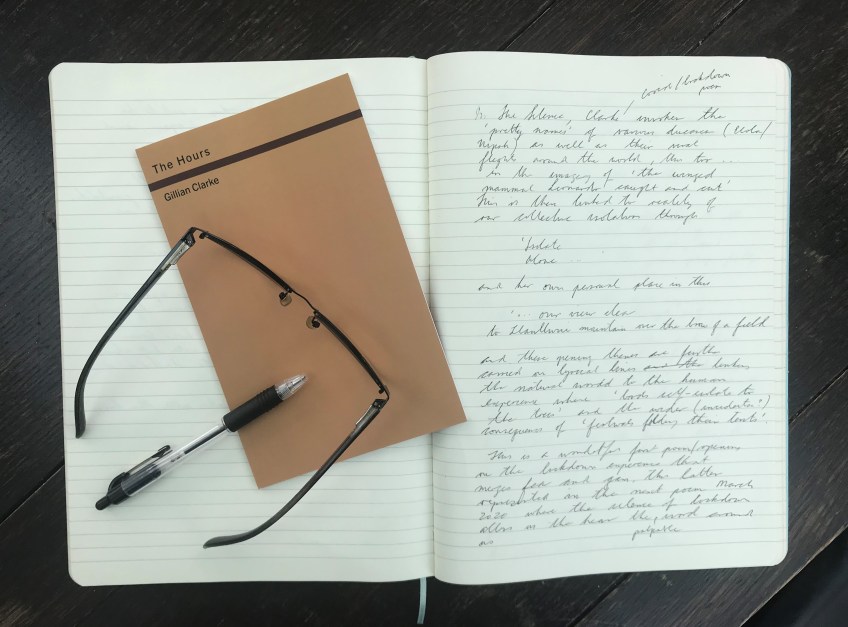 The Hours
Gillian Clarke
covid/lockdown
poem
In The Silence, Clarke invokes the
'pretty names' of various diseases (Ebola/
Nipah) as well as their
flights around the world, this too ..
in the imagery of 'the winged
mammal caught and cut'
This is then linked to reality of
our collective isolation through
'Isolate
Alone ...
and her own personal place in this
'... our view clear
to Llanllwni mountain over the brow of a field
and these opening themes are further
carried on lyrical lines and the linking
the natural world to the human
experience where 'birds self-isolate to
the trees' and the wider (unendurable?)
consequences of 'festivals folding their tents'.
This is a wonderful first poem/opening
on the lockdown experience that
merges fear and gain, this latter
represented in the next poem March
2020 where the silence of lockdown
allows us to hear the, world around
palpable
us